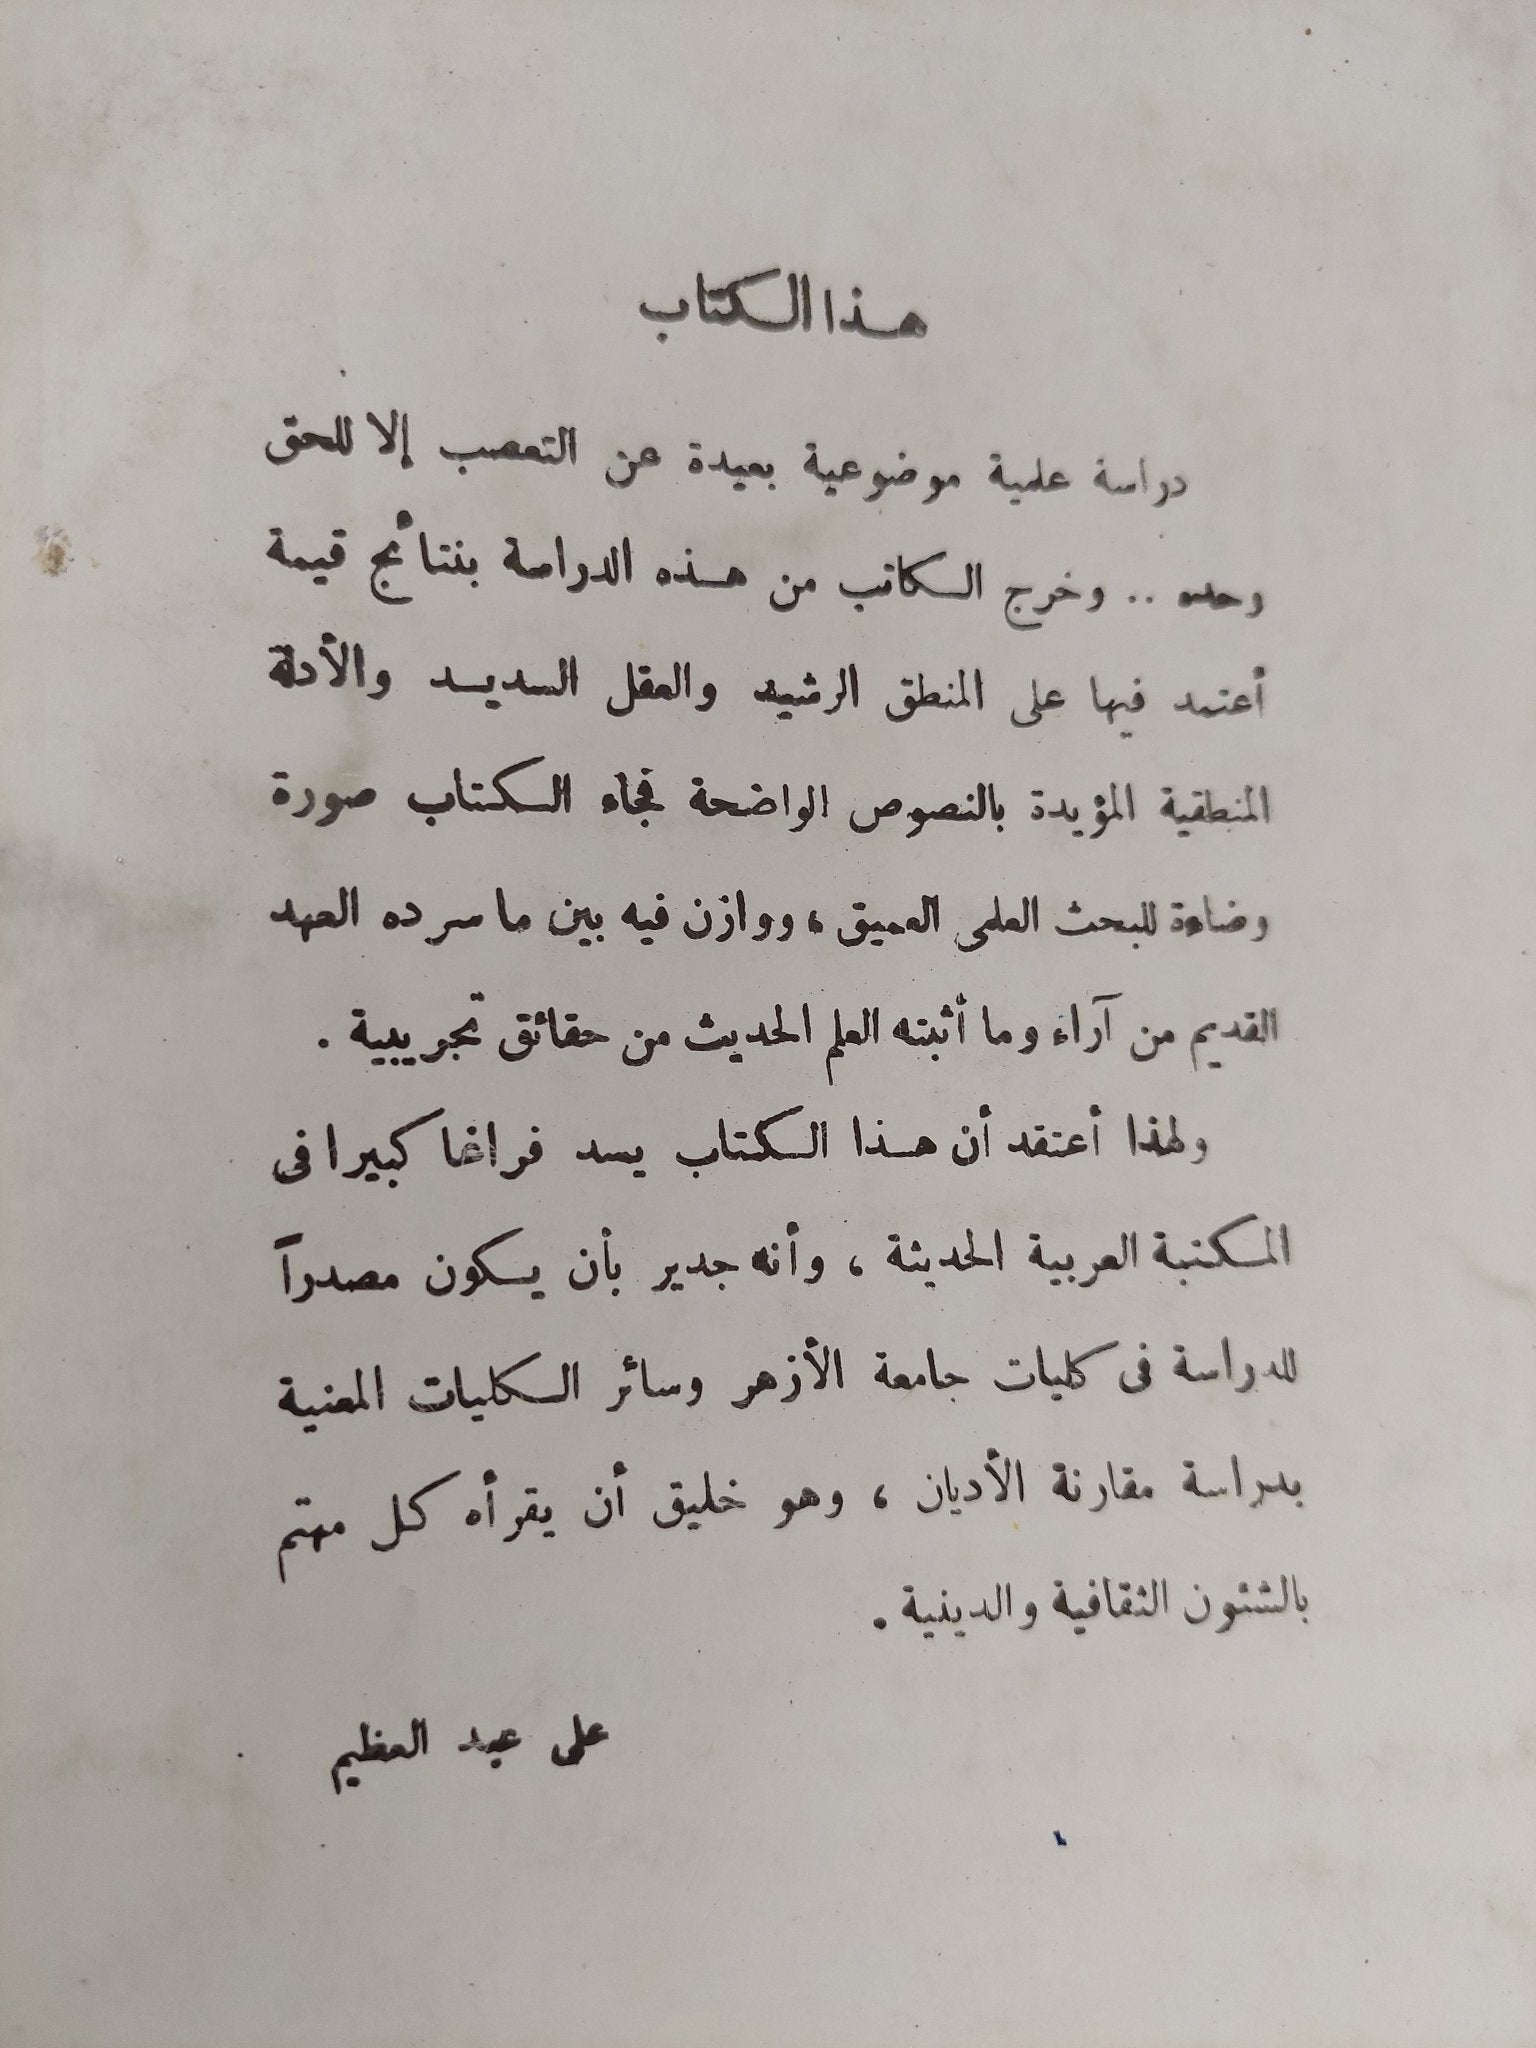 هذا الكتاب
دراسة علمية موضوعية بعيدة عن التعصب إلا للحق
وحده .. وخرج الكاتب من هذه الدراسة بنتائج قيمة
أعتمد فيها على المنطق الرشيد والعقل السديد والأدلة
المنطقية المؤيدة بالنصوص الواضحة فجاء الكتاب صورة
وضاءة للبحث العلمى العميق ، ووازن فيه بين ما سرده العهد
القديم من آراء وما أثبته العلم الحديث من حقائق تجريبية .
ولهذا أعتقد أن هذا الكتاب يسد فراغا كبيرا فى
المكتبة العربية الحديثة ، وأنه جدير بأن يكون مصدرآ
للدراسة فى كليات جامعة الأزهر وسائر الكليات المعنية
بدراسة مقارنة الأديان ، وهو خليق أن يقرأه كل مهتم
بالشئون الثقافية والدينية .
على عبد العظيم